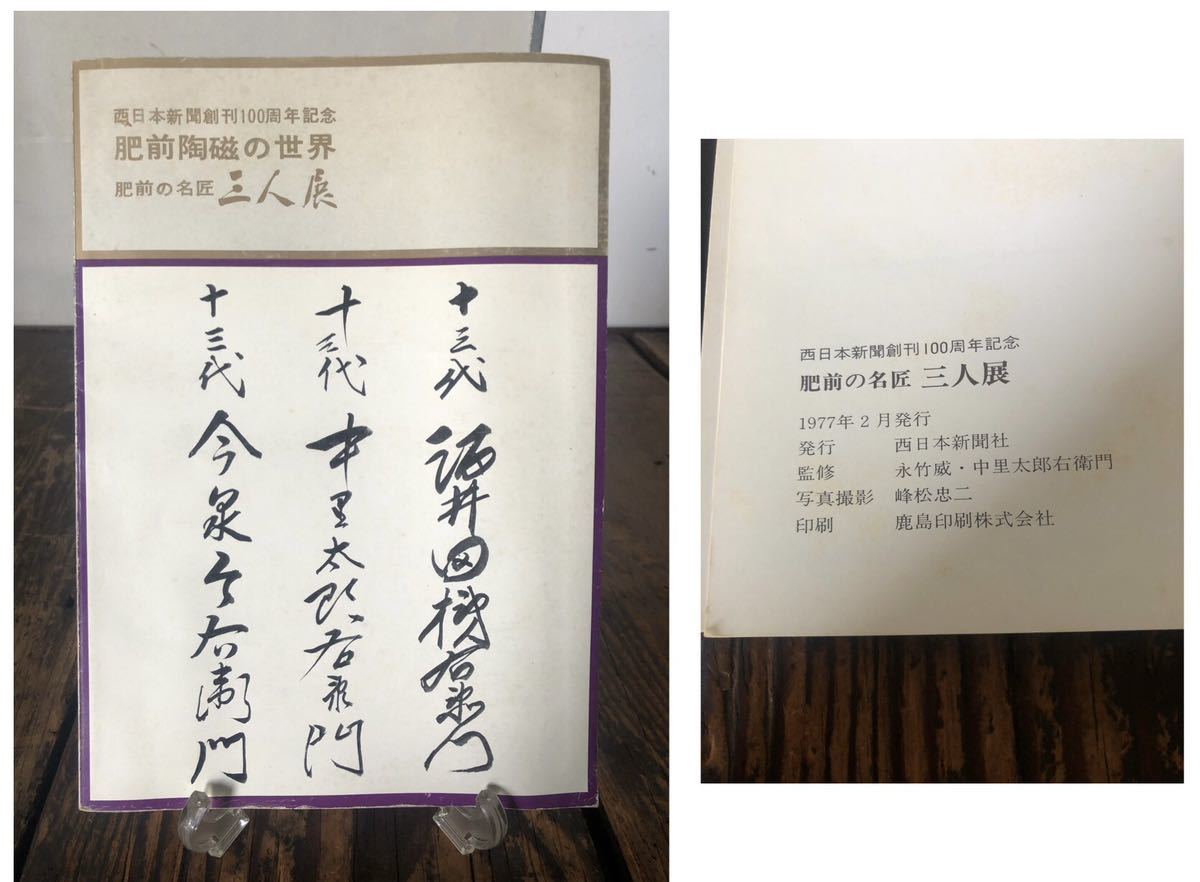 西日本新聞創刊100周年記念
肥前陶磁の世界
肥前の名匠 三人展
十三代 酒井田柿右衛門
十三代 中里太郎右衛門
十三代 今泉今右衛門
西日本新聞創刊100周年記念
肥前の名匠 三人展
1977年2月発行
発行 西日本新聞社
監修 永竹威・中里太郎右衛門
写真撮影 峰松忠二
印刷 鹿島印刷株式会社